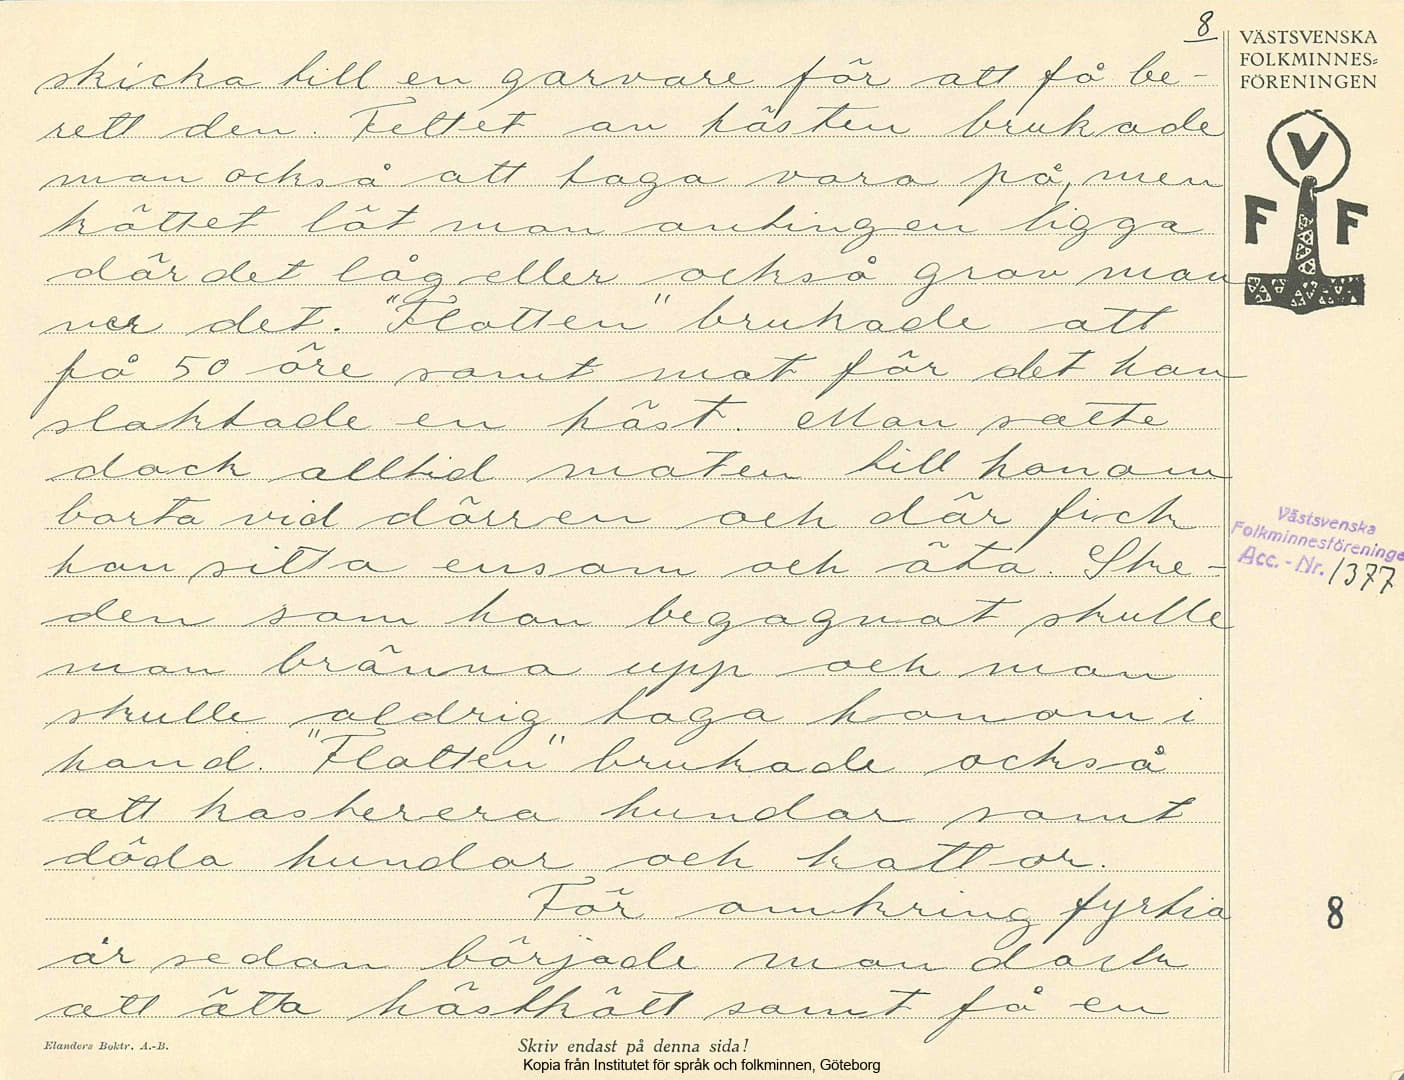 8
VÄSTSVENSKA
FOLKMINNES=
FÖRENINGEN
V
F F
skicka till en garvare för att få be-
rett den. Fettet av hästen brukade
man också att taga vara på, men
köttet lät man antingen ligga
där det låg eller också grov man
ner det. "Flatten" brukade att
få 50 öre samt mat för det han
slaktade en häst. Man satte
dock alltid maten till honom
borta vid dörren och där fick
han sitta ensam och äta. Ske-
den som han begagnat skulle
man bränna upp och man
skulle aldrig taga honom i
hand. "Flatten" brukade också
att kasterera hundar samt
döda hundar och kattor.
För omkring fyrtio
år sedan började man dock
att äta hästkött samt få en
Västsvenska
Folkminnesföreninge
Acc. - Nr. 1377
8
Elanders Boktr. A.-B.
Skriv endast på denna sida!
Kopia från Institutet för språk och folkminnen, Göteborg